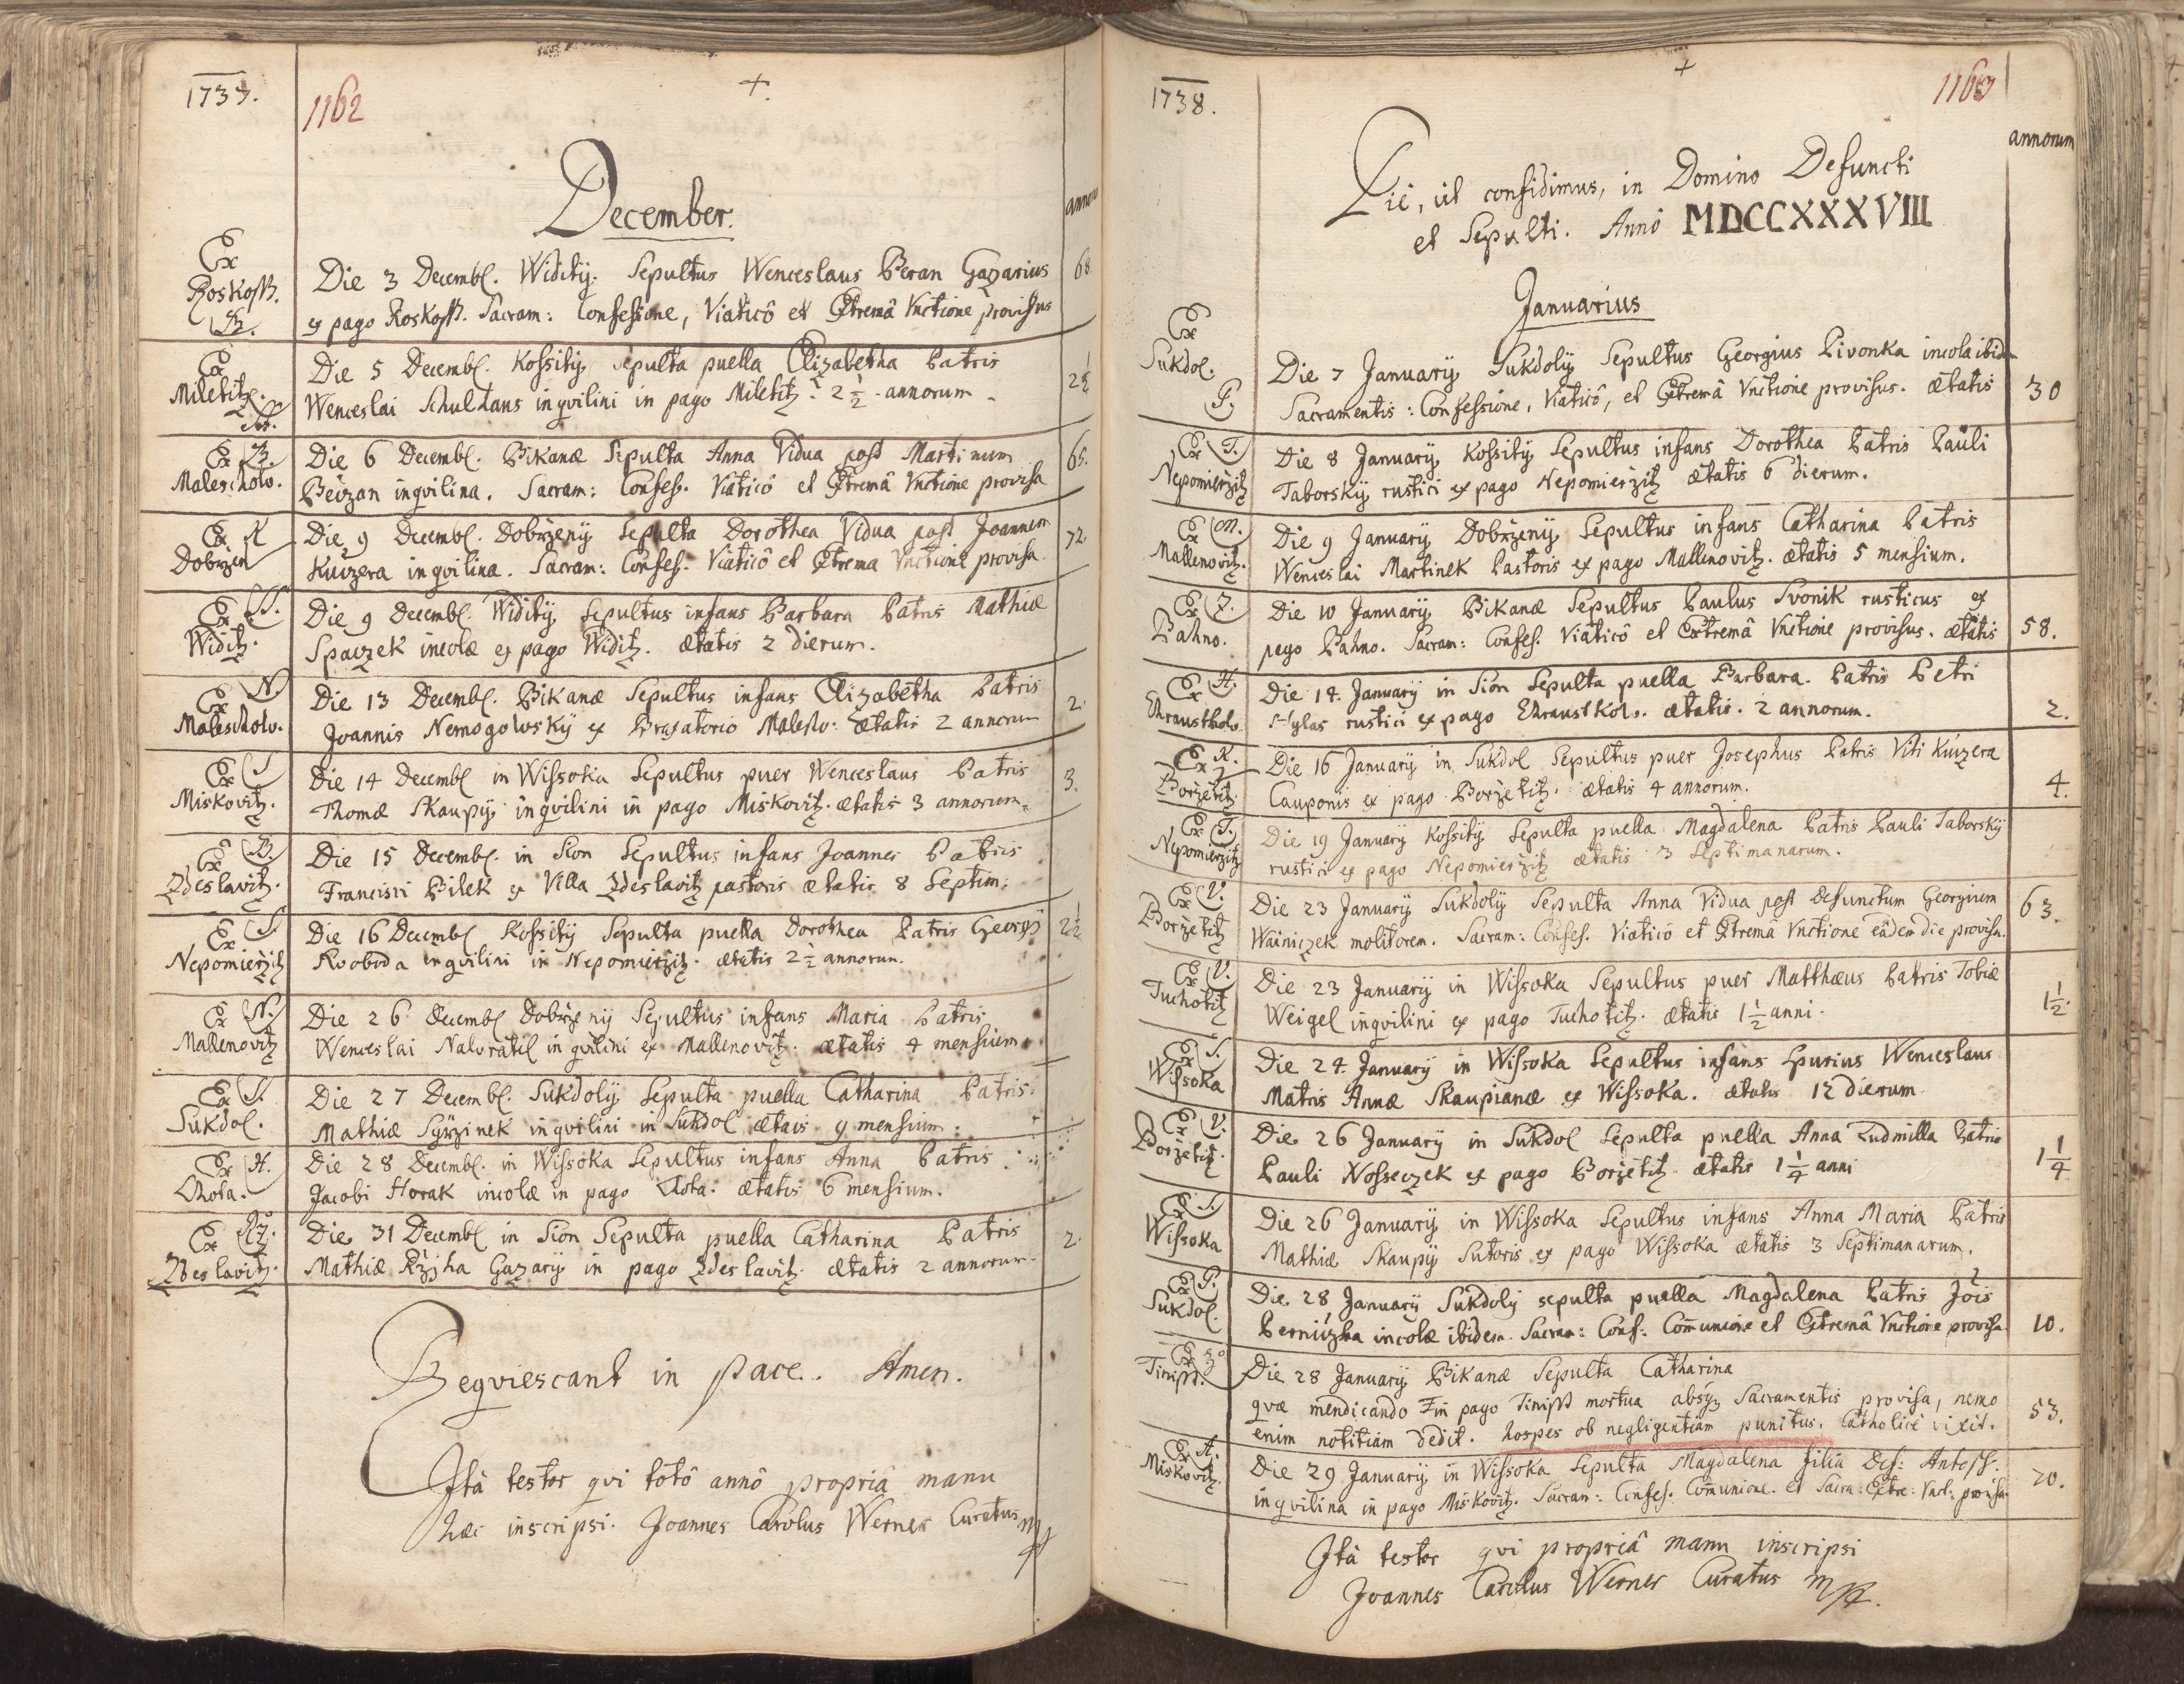 1737.
1162
+
December.
annorum
Ex Roskoss. B.
Die 3 Decembl. Widitij Sepultus Wenceslaus Beran Gazarius 68.
ex pago Roskoss. Sacram: Confessione, Viaticô et Extremâ Vnctione provisus
Ex Miletitz. Sch.
Die 5 Decembl. Kossitij sepulta puella Elizabetha Patris 2 1/2
Wenceslai Schultans inqvilini in pago Miletitz: 2 1/2. annorum.
Ex B. Maleschow.
Die 6 Decembl. Bikanæ Sepulta Anna Vidua post Martinum 65.
Beizan inqvilina. Sacram: Confess. Viaticô et Extremâ Vnctione provisa
Ex K Dobrzen
Die 9 Decembl. Dobrzenij Sepulta Dorothea Vidua post Joannem 72.
Kuizera inqvilina. Sacram: Confes. Viaticô et Extrema Vnctione provisa.
Ex S. Widitz.
Die 9 Decembl. Widitij Sepultus infans Barbara Patris Mathiæ
Spaczek incolæ ex pago Widitz. Ætatis 2 dierum.
Ex N. Maleschow.
Die 13 Decembl. Bikanæ Sepultus infans Elizabetha Patris 2.
Joannis Nemogowskij ex Braxatorio Malesko: Ætatis 2 annorum
Ex S Miskovitz.
Die 14 Decembl in Wissoka Sepultus puer Wenceslaus Patris 3.
Thomæ Skaupij inqvilini in pago Miskovitz. ætatis 3 annorum.
Ex B. Zdeslavitz.
Die 15 Decembl. in Sion Sepultus infans Joannes Patris
Francisci Bilek ex Villa Zdeslavitz pastoris ætatis 8 Septim:
Ex S. Nepomierzitz
Die 16 Decembl Kossitij Sepulta puella Dorothea Patris Georgij 2 1/2
Svoboda inqvilini in Nepomierzitz. ætatis 2 1/2 annorum.
Ex N. Mallenovitz
Die 26 Decembl Dobrzenij Sepultus infans Maria Patris
Wenceslai Navratil inqvilini ex Mallenovitz. ætatis 4 mensium.
Ex S. Sukdol.
Die 27 Decembl. Sukdolij Sepulta puella Catharina Patris
Mathiæ Syrzinek inqvilini in Sukdol ætais 9 mensium.
Ex H. Lhota.
Die 28 Decembl. in Wissoka Sepultus infans Anna Patris
Jacobi Horak incolæ in pago Lhota. ætatis 6 mensium.
Ex Rz. Zdeslavitz.
Die 31 Decembl in Sion Sepulta puella Catharina Patris 2.
Mathiæ Rzjha Gazarij in pago Zdeslavitz. ætatis 2 annorum.
Reqviescant in pace. Amen.
Ità testor qvi totô annô propriâ manu
hæc inscripsi. Joannes Carolus Werner Curatus mp
1738.
+
1163
annorum
Piè, ut confidimus, in Domino Defuncti
et Sepulti. Annô MDCCXXXVIII
Januarius
Ex Sukdol. P.
Die 7 Januarij Sukdolij Sepultus Georgius Pivonka incola ibidem
Sacramentis: Confessione, Viaticô, et Extremâ Vnctione provisus. Ætatis 30
Ex T. Nepomierzitz
Die 8 Januarij Kossitij Sepultus infans Dorothea Patris Pauli
Taborskij rustici ex pago Nepomierzitz ætatis 6 dierum.
Ex M. Mallenovitz.
Die 9 Januarij Dobrzenij Sepultus infans Catharina Patris
Wenceslai Martinek Pastoris ex pago Mallenovitz. ætatis 5 mensium.
Ex Z. Pahno.
Die 10 Januarij Bikanæ Sepultus Paulus Zvonik rusticus ex
pago Pahno. Sacram: Confes. Viaticô et Extremâ Vnctione provisus. ætatis 58.
Ex H. Chraustkow.
Die 14. Januarij in Sion Sepulta puella Barbara. Patris Petri
Hylas rustici ex pago Chraustkow. ætatis. 2 annorum. 2.
Ex K. Borzetitz.
Die 16 Januarij in Sukdol Sepultus puer Josephus Patris Viti Kuizera
Cauponis ex pago Borzetitz. ætatis 4 annorum. 4.
Ex T. Nepomierzitz
Die 19 Januarij Kossitij Sepulta puella Magdalena Patris Pauli Taborskij
rustici ex pago Nepomierzitz ætatis 3 Septimanarum.
Ex V. Borzetitz
Die 23 Januarij Sukdolij Sepulta Anna Vidua post Defunctum Georgium 63.
Wainiczek molitorem. Sacram: Confes. Viaticô et Extremâ Vnctione eâdem die provisa.
Ex V. Tuchotitz
Die 23 Januarij in Wissoka Sepultus puer Matthæus Patris Tobiæ
Weigel inqvilini ex pago Tuchotitz. Ætatis 1 1/2 anni. 1 1/2.
Ex S. Wissoka
Die 24. Januarij in Wissoka Sepultus infans Spurius Wenceslaus
Matris Annæ Skaupianæ ex Wissoka. ætatis 12 dierum
Ex V. Borzetitz.
Die 26 Januarij in Sukdol Sepulta puella Anna Ludmilla Patris
Pauli Nosseczek ex pago Borzetitz. ætatis 1 1/4 anni 1 1/4
Ex S. Wissoka
Die 26 Januarij in Wissoka Sepultus infans Anna Maria Patris
Mathiæ Skaupij Sutoris ex pago Wissoka ætatis 3 Septimanarum.
Ex P. Sukdol.
Die 28 Januarij Sukdolij sepulta puella Magdalena Patris Jois
Perniczka incolæ ibidem. Sacram: Conf: Com̄unione et Extremâ Vnctione provisa 10.
Ex Tinisst.
Die 28 Januarij Bikanæ Sepulta Catharina
qvæ mendicando in pago Tinisst mortua absq; Sacramentis provisa, nemo 53.
enim notitiam dedit. hospes ob negligentiam punitus. Catholicè vixit.
Ex A. Miskovitz.
Die 29 Januarij in Wissoka Sepulta Magdalena filia Def: Antoss.
inqvilina in pago Miskovitz. Sacram: Confes. Com̄unione. et Sacra: Extre: Vnct: provisa. 20.
Ità testor qvi propriâ manu inscripsi
Joannes Carolus Werner Curatus mp.